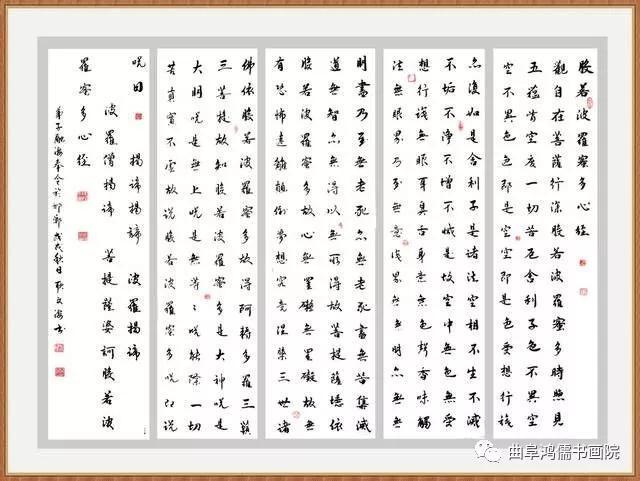 般若波羅蜜多心經
觀自在菩薩行深般若波羅蜜多時照見
五蘊皆空度一切苦厄舍利子色不異空
空不異色色即是空空即是色受想行識
亦復如是舍利子是諸法空相不生不滅
不垢不淨不增不減是故空中無色無受
想行識無眼耳鼻舌身意無色聲香味觸
法無眼界乃至無意識界無無明亦無無
明盡乃至無老死亦無老死盡無苦集滅
道無智亦無得以無所得故菩提薩埵依
般若波羅蜜多故心無罣礙無罣礙故無
有恐怖遠離顛倒夢想究竟涅槃三世諸
佛依般若波羅蜜多故得阿耨多羅三藐
三菩提故知般若波羅蜜多是大神咒是
大明咒是無上咒是無等等咒能除一切
苦真實不虛故說般若波羅蜜多咒即說
咒曰 揭諦揭諦 波羅揭諦
波羅僧揭諦 菩提薩婆訶般若波
羅蜜多心經
弟子融海奉 於邯鄲戊戌秋日耿文海書
曲阜鸿儒书画院